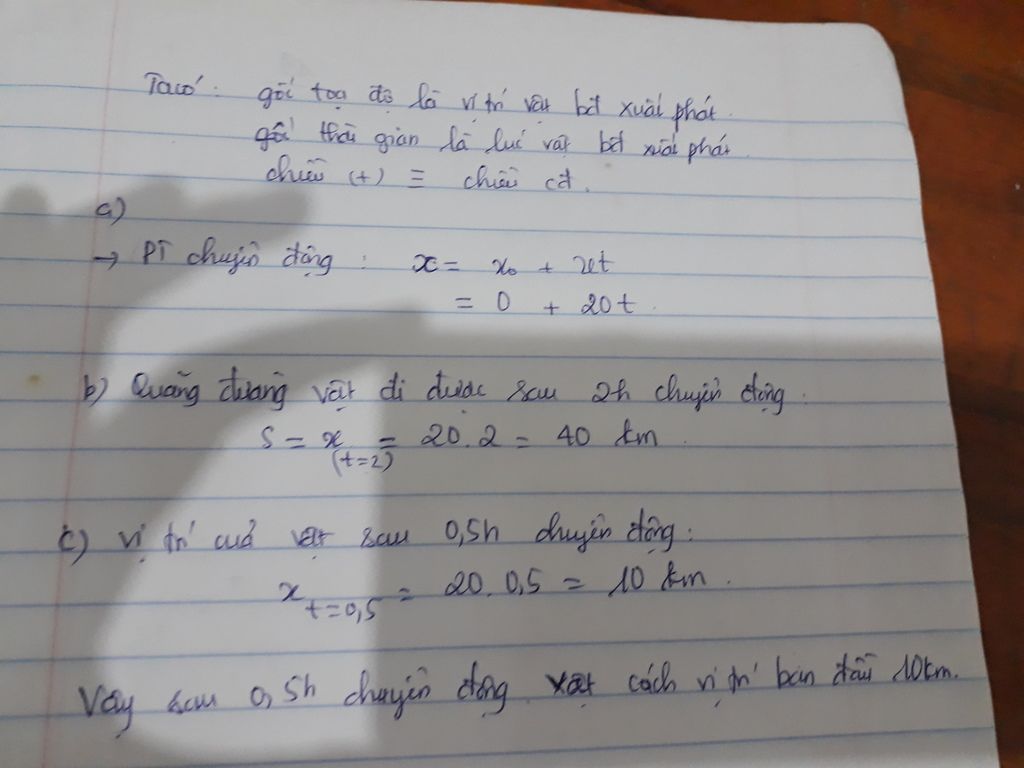 Ta có: gốc toạ độ là vị trí vật bđ xuất phát.
gốc thời gian là lúc vật bđ xuất phát
chiều (+) ≡ chiều cđ.
a)
→ PT chuyển động : x = x₀ + vt
= 0 + 20t.
b) Quãng đường vật đi được sau 2h chuyển động:
S = x = 20.2 = 40 km
(t=2)
c) vị trí của vật sau 0,5h chuyển động:
x = 20.0,5 = 10 km.
t=0,5
Vậy sau 0,5h chuyển động vật cách vị trí ban đầu 10km.